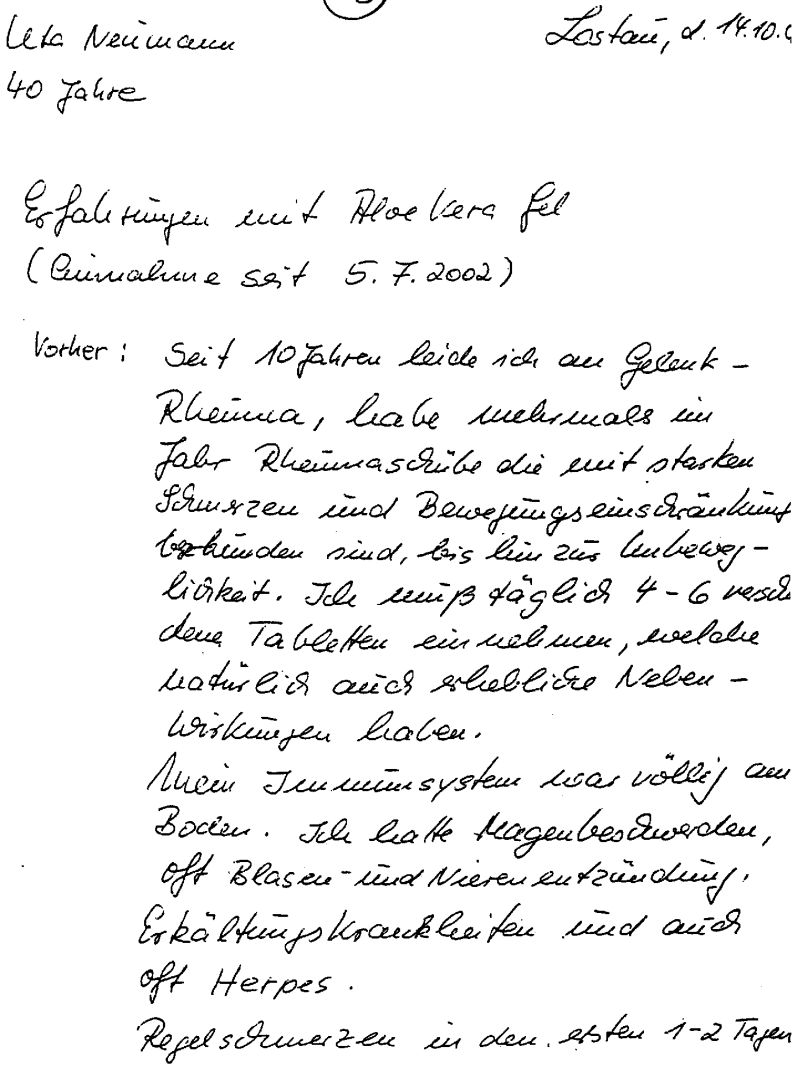 Uta Neumann Lostau, d. 14.10.
40 Jahre
Erfahrungen mit Aloe Vera Gel
(Einnahme seit 5.7.2002)
Vorher: Seit 10 Jahren leide ich an Gelenk-
Rheuma, habe mehrmals im
Jahr Rheumaschübe die mit starken
Schmerzen und Bewegungseinschränkung
verbunden sind, bis hin zur Unbeweg-
lichkeit. Ich muß täglich 4-6 versch
dene Tabletten einnehmen, welche
natürlich auch erhebliche Neben-
wirkungen haben.
Mein Immunsystem war völlig am
Boden. Ich hatte Magenbeschwerden,
oft Blasen- und Nierenentzündung,
Erkältungskrankheiten und auch
oft Herpes.
Regelschmerzen in den ersten 1-2 Tagen